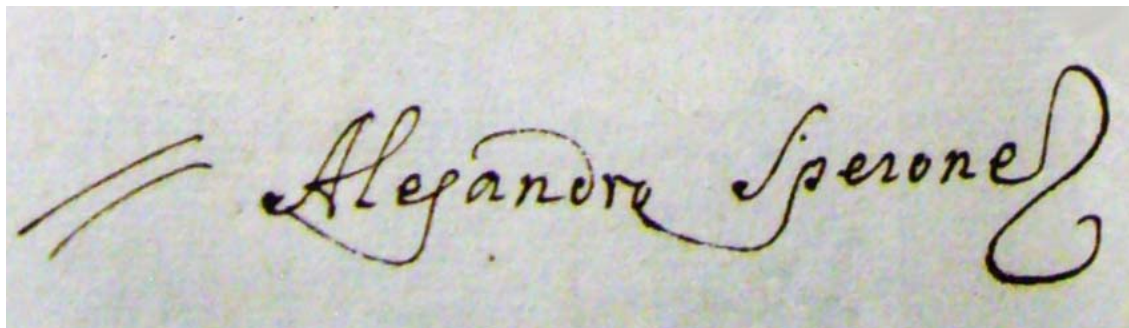 Alejandro Sperone